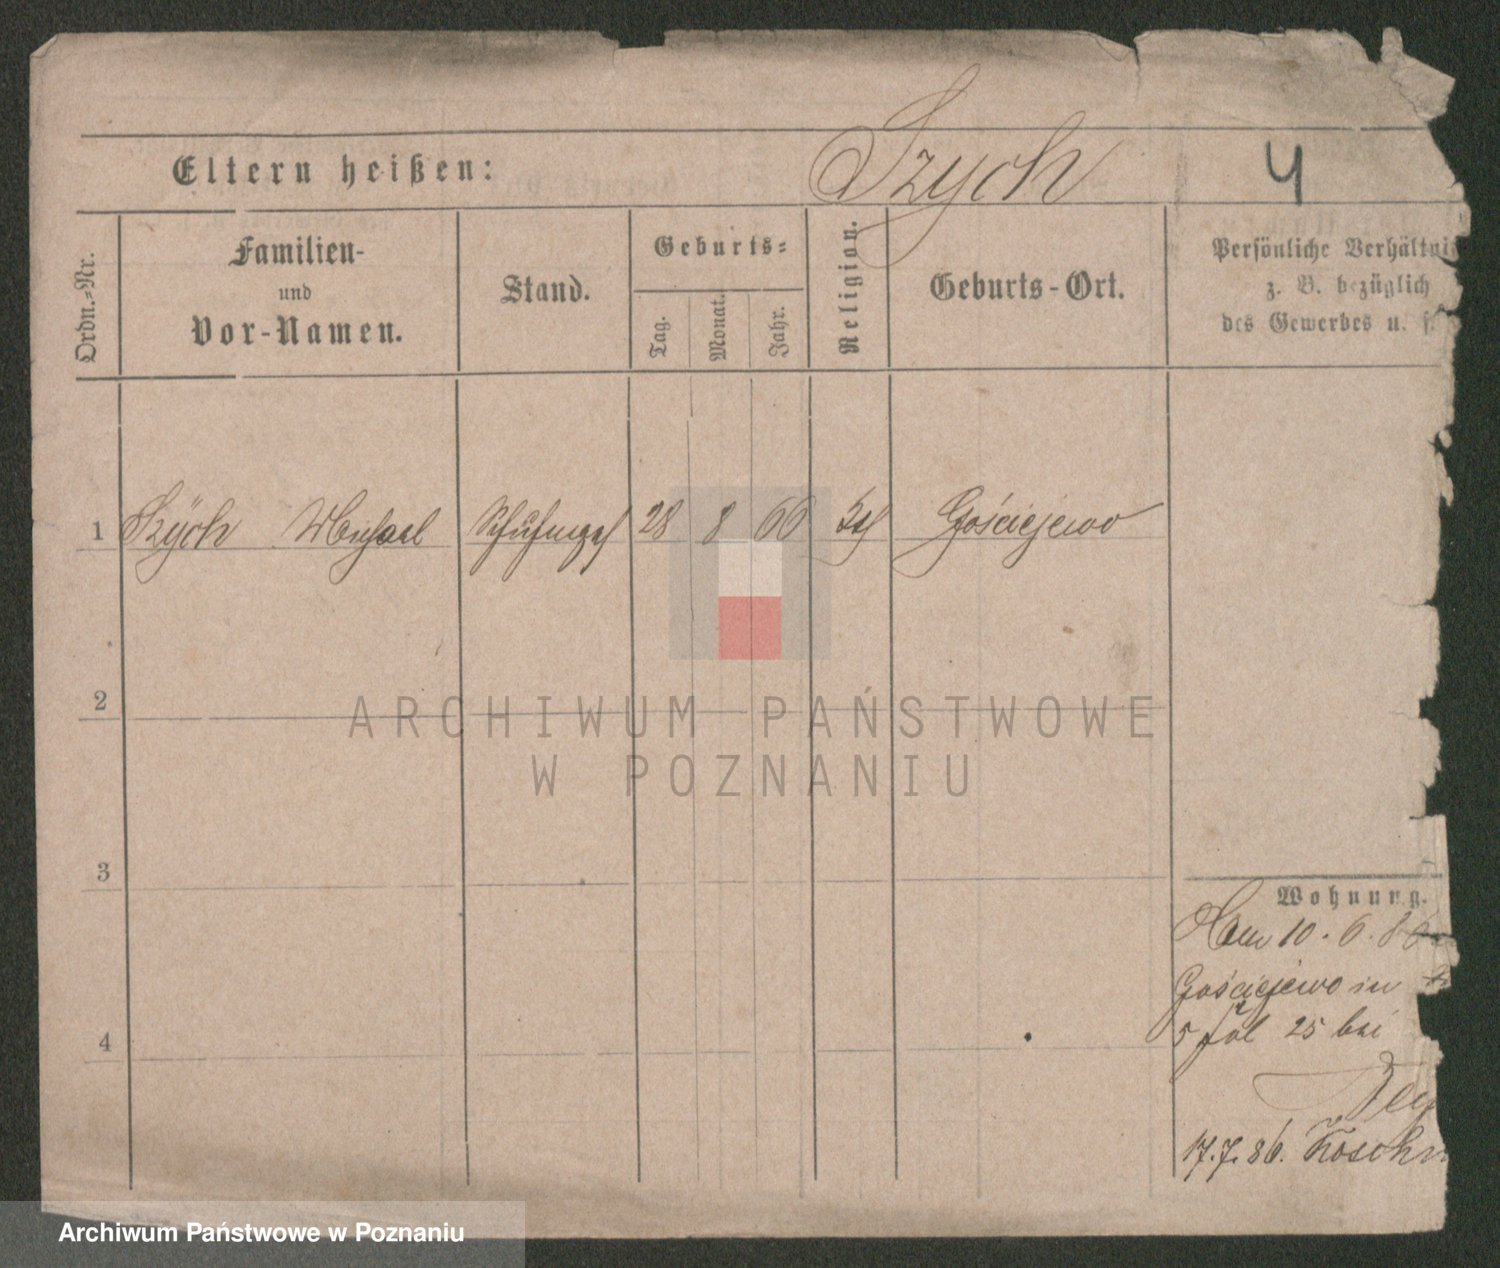 Szych
4
Eltern heißen:
Ordn.-Nr.
Familien-
und
Vor-Namen.
Stand.
Geburts-
Tag.
Monat.
Jahr.
Religion.
Geburts-Ort.
Persönliche Verhältni
z. B. bezüglich
des Gewerbes u. f.
1 Szÿch Michael 28 8 66 Gościejewo
2
3
4
Wohnung.
10. 6. 86
Gościejewo in
5 25 bei
17.7.86. Kosch
ARCHIWUM PAŃSTWOWE
W POZNANIU
Archiwum Państwowe w Poznaniu